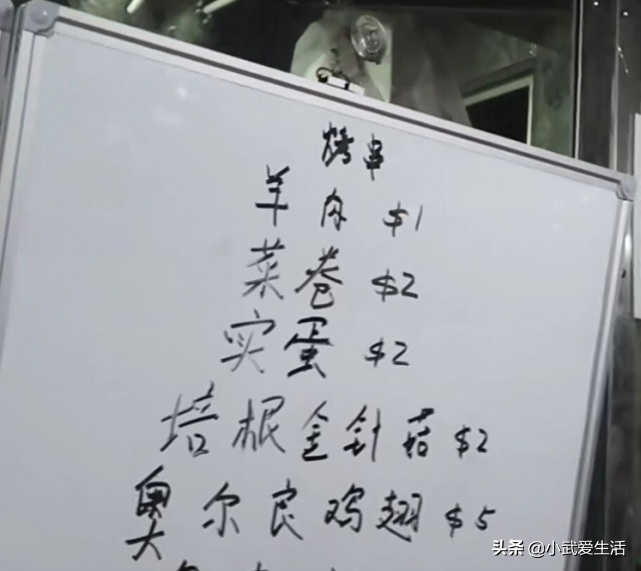 烤串
羊肉 $1
菜卷 $2
实蛋 $2
培根金针菇 $2
奥尔良鸡翅 $5
头条 @小武爱生活